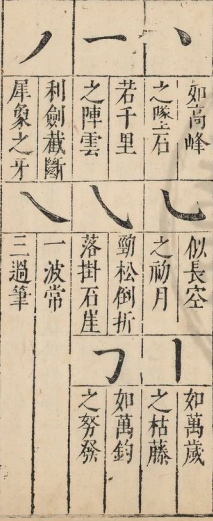 丶
如高峰
之墜石
一
若千里
之陣雲
丿
利劍截斷
犀象之牙
乚
似長空
之初月
㇂
勁松倒折
落掛石崖
㇏
一波常
三過筆
丨
如萬歲
之枯藤
㇆
如萬鈞
之努發